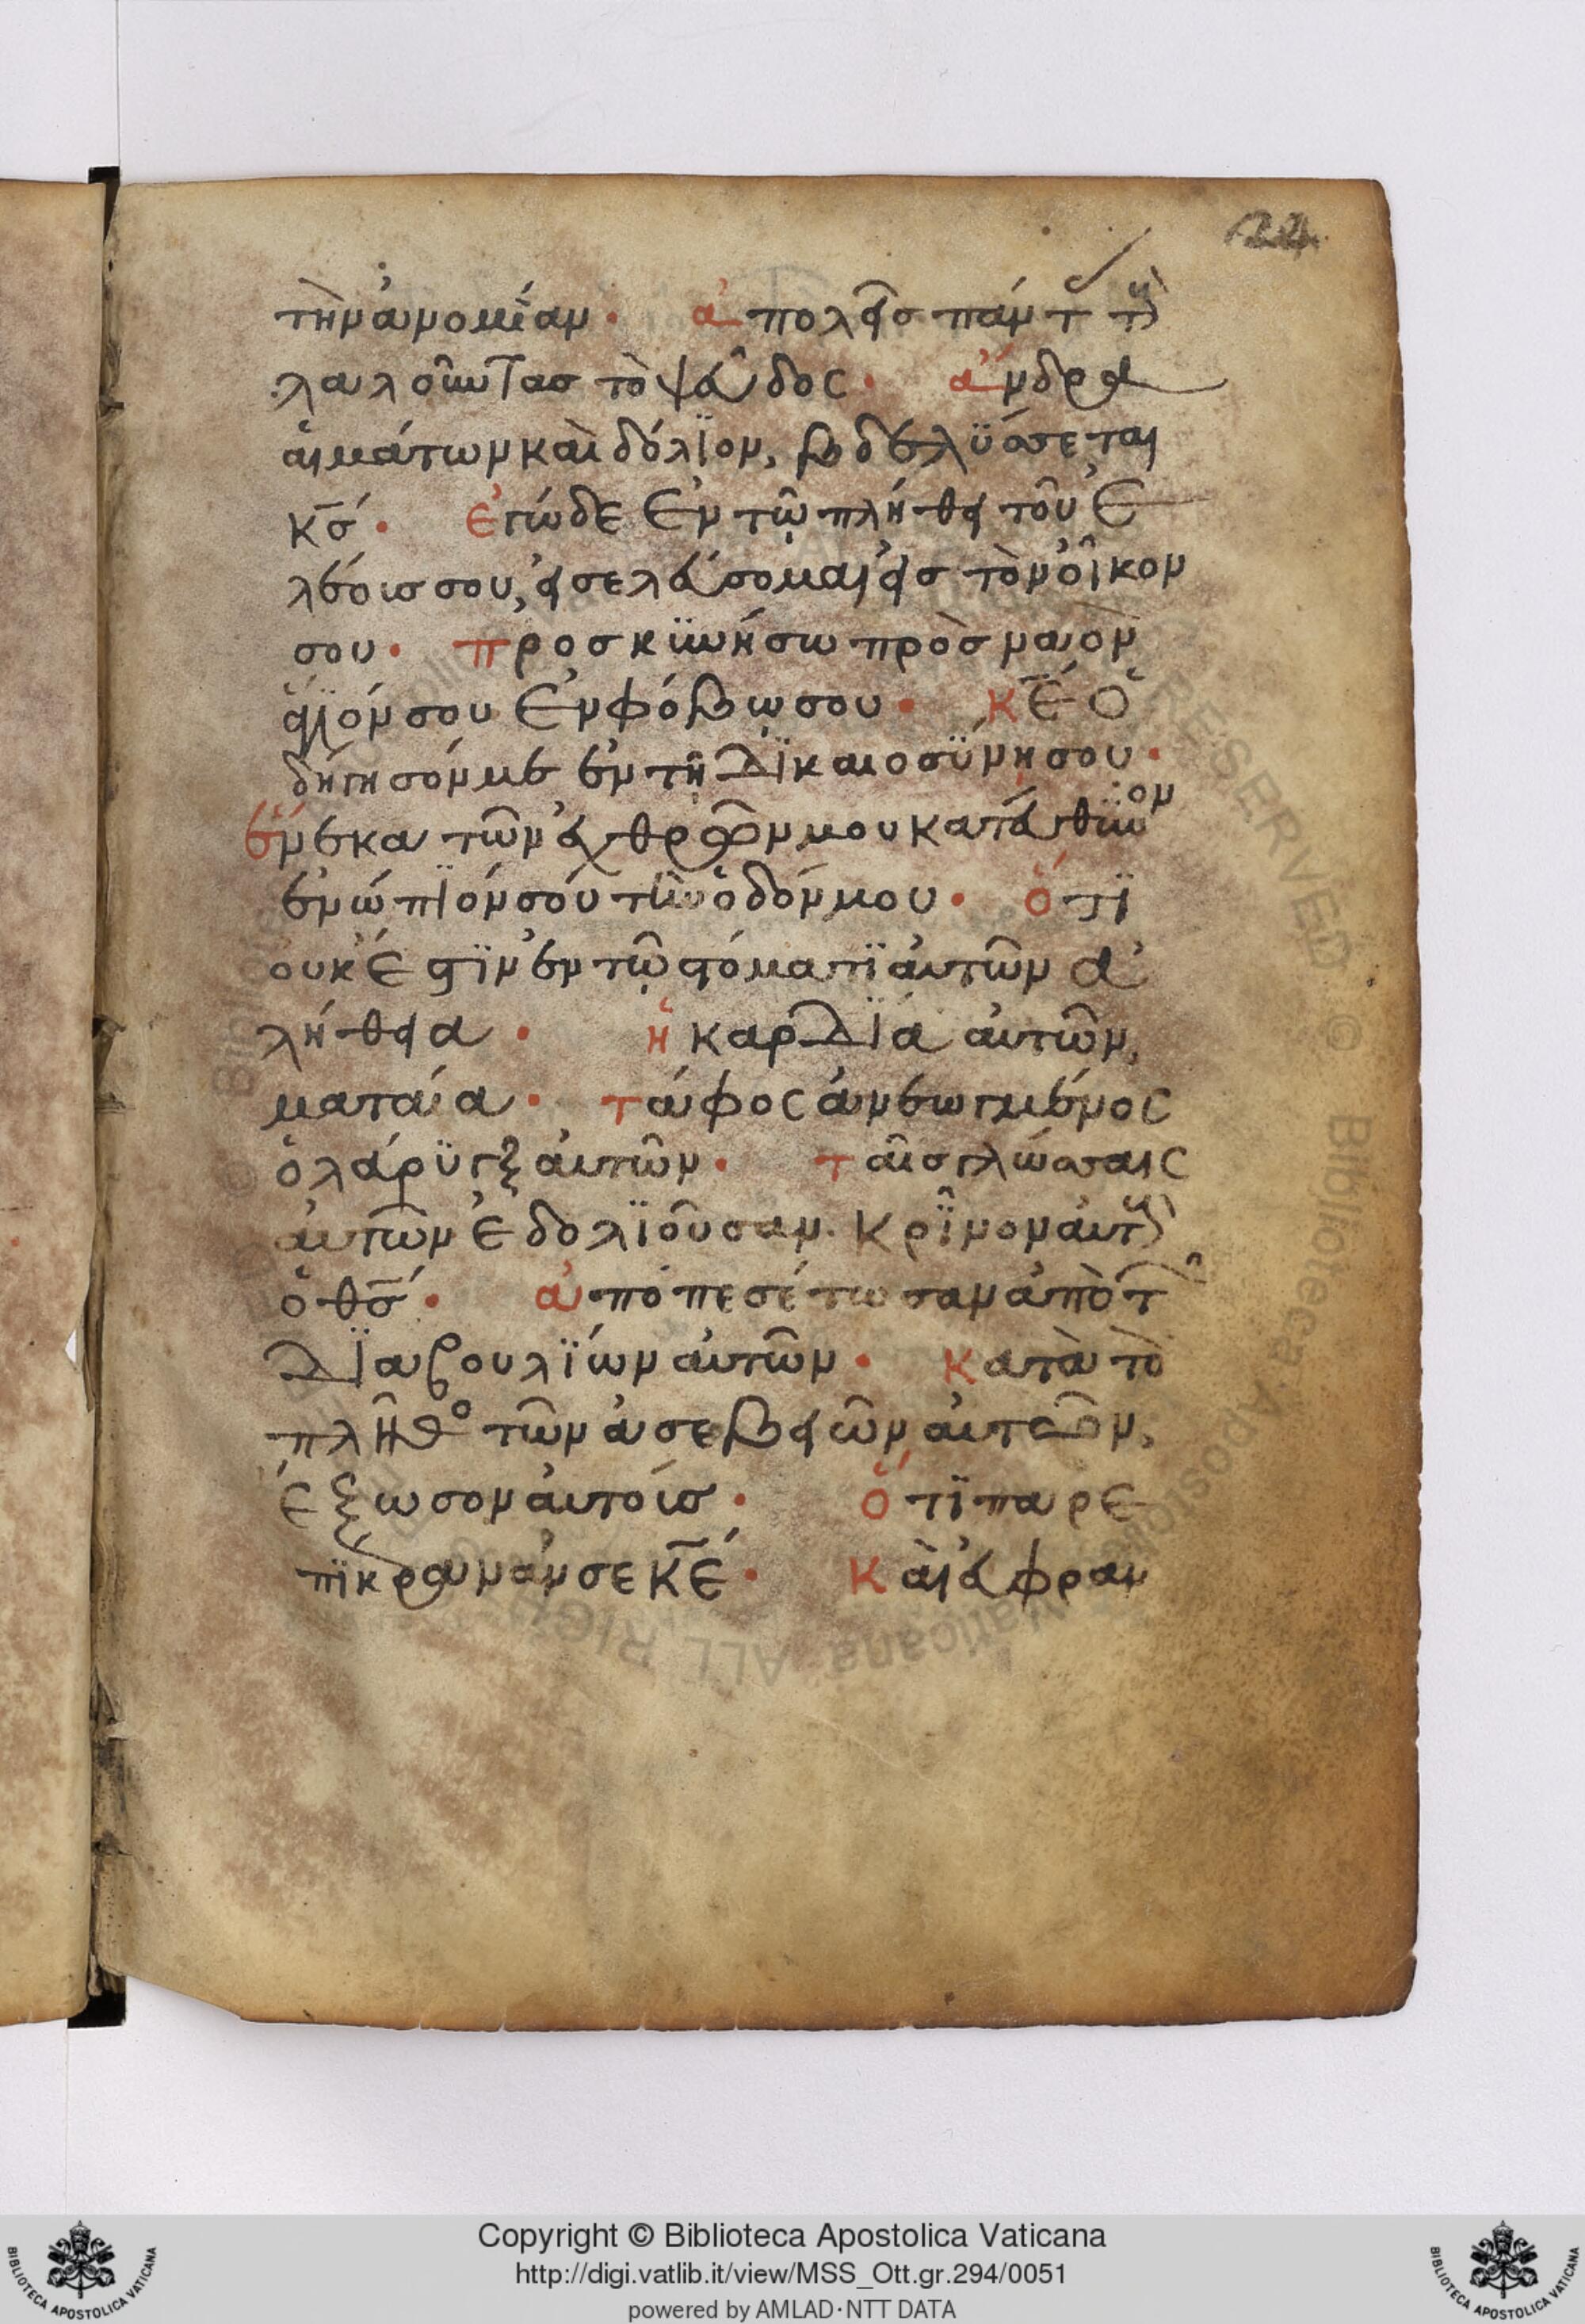 24
τὴν ἀνομίαν· ἀπολεῖς πάντ τ
λαλοῦντας τὸ ψεῦδος· ἄνδρα
αἱμάτων καὶ δόλϊον, βδελύσσεται
κ̅σ· ἐγὼ δὲ ἐν τῷ πλήθει τοῦ ἐ
λέοις σου, εἰσελεύσομαι εἰς τὸν οἶκον
σου· προσκϋνήσω πρὸς ναὸν
ἅγϊόν σου ἐν φόβω σου· κ̅ε ὁ
δήγησόν με ἐν τῇ δϊκαιοσύνη σου·
ἕνεκα τῶν ἐχθρῶν μου κατεύθυνον
ἐνώπϊόν σου τὴν ὁδόν μου· ὅτϊ
οὐκ έστϊν ἐν τῷ στόματϊ αὐτῶν ἀ
λήθεια· ἡ καρδΐα αὐτῶν,
ματαία· τάφος ἀνεωγμένος
ὁ λάρυγξ αὐτῶν· ταῖς γλώσσαις
αὐτῶν ἐδολϊοῦσαν. κρῖνον αὐτ
ὁ θ̅σ· ἀποπεσέτωσαν ἀπὸ τ
δϊαβουλϊών αὐτῶν· κατὰ τὸ
πλῆθο τῶν ἀσεβειῶν αὐτῶν,
ἔξωσον αὐτοίς· ὅτϊ παρε
πίκρανάν σε κ̅ε· καὶ εὐφραν
Copyright © Biblioteca Apostolica Vaticana
http://digi.vatlib.it/view/MSS_Ott.gr.294/0051
powered by AMLAD·NTT DATA
BIBLIOTECA APOSTOLICA VATICANA
BIBLIOTECA APOSTOLICA VATICANA